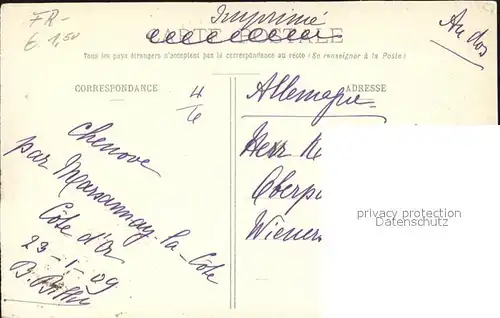 FR-
6.1,50
Imprimé
Au dos
CARTE POSTALE
Tous les pays étrangers n'acceptent pas la correspondance au recto (Se renseigner à la Poste)
CORRESPONDANCE
ADRESSE
4/6
Allemagne
Chenove
par Marsannay-la-Côte
Côte d'Or
23-1-09
Herr
Oberp
Wiener
privacy protection
Datenschutz